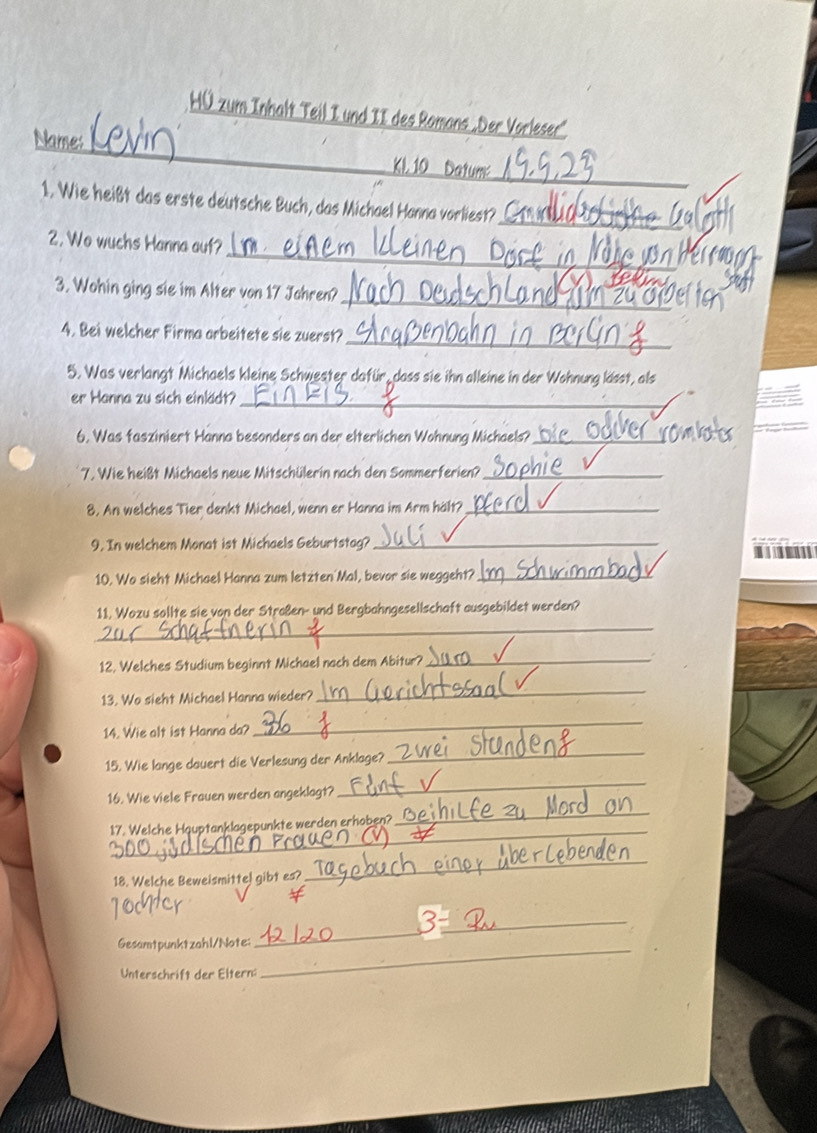 HÜ zum Inhalt Teil I und II des Romans „Der Vorleser"
Name: Kevin
Kl. 10 Datum: 19.9.25
1. Wie heißt das erste deutsche Buch, das Michael Hanna vorliest?
2. Wo wuchs Hanna auf? Im einem kleinen Dorf in Nähe von
3. Wohin ging sie im Alter von 17 Jahren? Nach Deutschland (√) Berlin um zu arbeiten
4. Bei welcher Firma arbeitete sie zuerst? Straßenbahn in Berlin f
5. Was verlangt Michaels kleine Schwester dafür, dass sie ihn alleine in der Wohnung lässt, als
er Hanna zu sich einlädt? Ein Eis. f
6. Was fasziniert Hanna besonders an der elterlichen Wohnung Michaels? Die
7. Wie heißt Michaels neue Mitschülerin nach den Sommerferien? Sophie √
8. An welches Tier denkt Michael, wenn er Hanna im Arm hält? Pferd √
9. In welchem Monat ist Michaels Geburtstag? Juli √
10. Wo sieht Michael Hanna zum letzten Mal, bevor sie weggeht? Im Schwimmbad √
11. Wozu sollte sie von der Straßen- und Bergbahngesellschaft ausgebildet werden?
zur Schaffnerin f
12. Welches Studium beginnt Michael nach dem Abitur? Jura √
13. Wo sieht Michael Hanna wieder? Im Gerichtssaal √
14. Wie alt ist Hanna da? 36 f
15. Wie lange dauert die Verlesung der Anklage? zwei Stunden f
16. Wie viele Frauen werden angeklagt? Fünf √
17. Welche Hauptanklagepunkte werden erhoben? Beihilfe zu Mord an
300 jüdischen Frauen (√) f
18. Welche Beweismittel gibt es? Tagebuch einer überlebenden
Tochter √ f
Gesamtpunktzahl/Note: 12/20 3-
Unterschrift der Eltern: